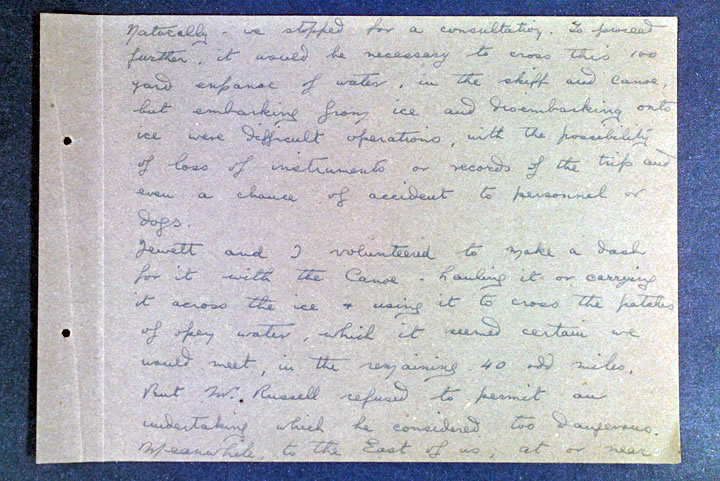 Naturally - we stopped for a consultation. To proceed
further, it would be necessary to cross this 100
yard expanse of water, in the skiff and canoe,
but embarking from ice and disembarking onto
ice were difficult operations, with the possibility
of loss of instruments or records of the trip and
even a chance of accident to personnel or
dogs.
Jewett and I volunteered to make a dash
for it with the Canoe - hauling it or carrying
it across the ice & using it to cross the patches
of open water, which it seemed certain we
would meet, in the remaining 40 odd miles.
But Mr. Russell refused to permit an
undertaking which he considered too dangerous.
Meanwhile, to the East of us, at or near